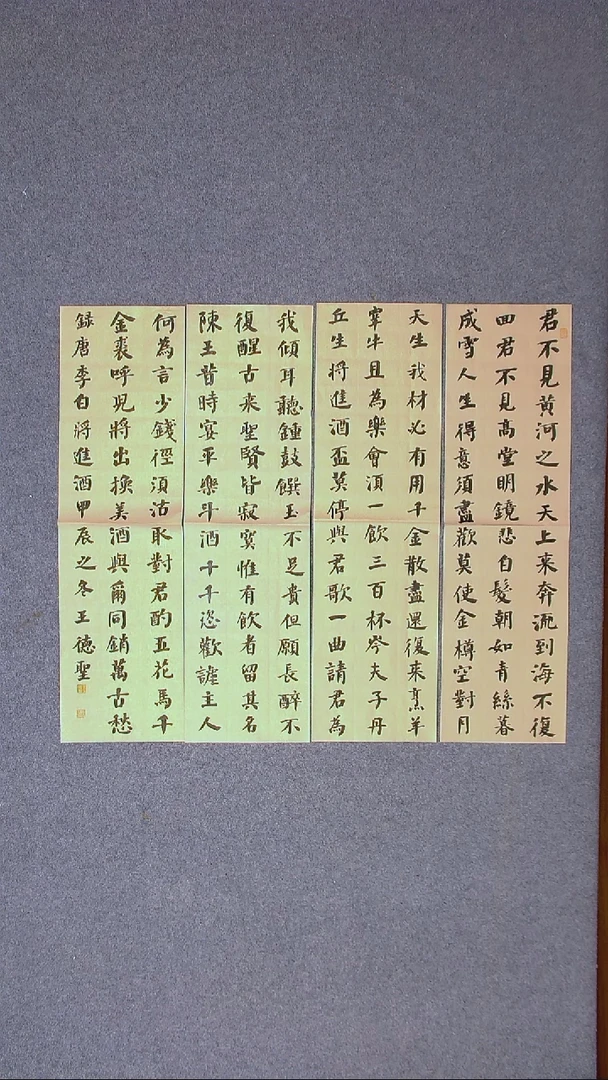 君不見黄河之水天上来奔流到海不復
回君不見髙堂明鏡悲白髮朝如青絲暮
成雪人生得意須盡歡莫使金樽空對月
天生我材必有用千金散盡還復来烹羊
宰牛且為樂會湏一飲三百杯岑夫子丹
丘生将進酒盃莫停與君歌一曲請君為
我傾耳聽鍾鼓饌玉不足貴但願長醉不
復醒古来聖賢皆寂寞惟有飲者留其名
陳王昔時宴平樂斗酒十千恣歡謔主人
何為言少錢徑須沽取對君酌五花馬千
金裘呼児將出換美酒與爾同銷萬古愁
録唐李白將進酒甲辰之冬王德聖